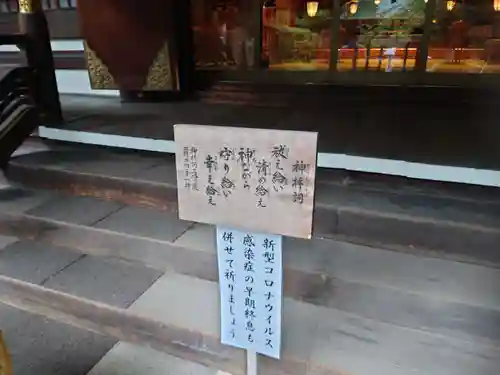 神拝詞
祓え給い
清め給え
神ながら
守り給い
幸え給え
新型コロナウイルス
感染症の早期終息も
併せて祈りましょう